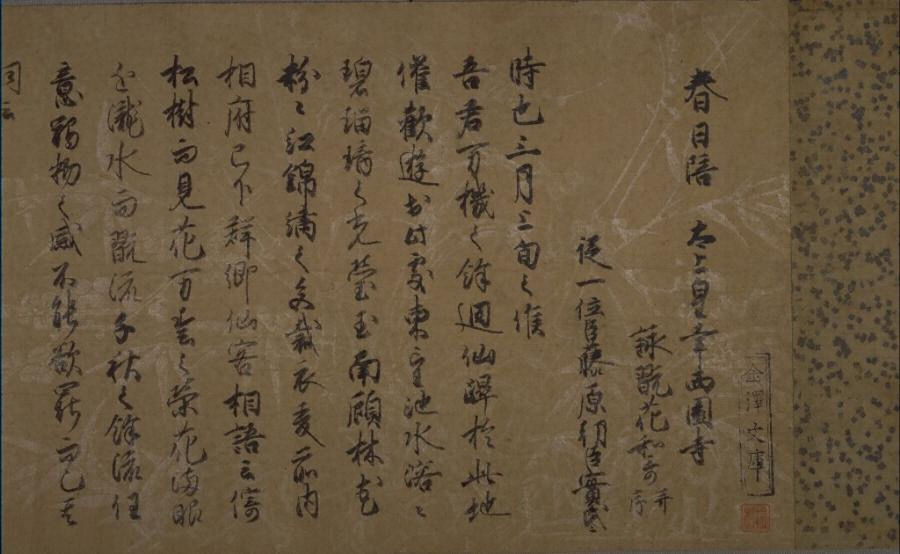 春日陪 太上皇幸西園寺
詠翫花和哥 并序
従一位臣藤原朝臣實氏
時也三月三旬之候
吾君万機之餘廻仙蹕於此地
催歡遊於此處東望池水溶々
碧瑠璃之光瑩玉南顧林花
粉々紅錦繍之文裁衣爰前内
相府已下群卿仙客相語云倚
松樹而見花万春之榮花満眼
臨瀧水而翫流千秋之餘流任
意詞物之感不能欲罷而已其
詞云
金澤文庫